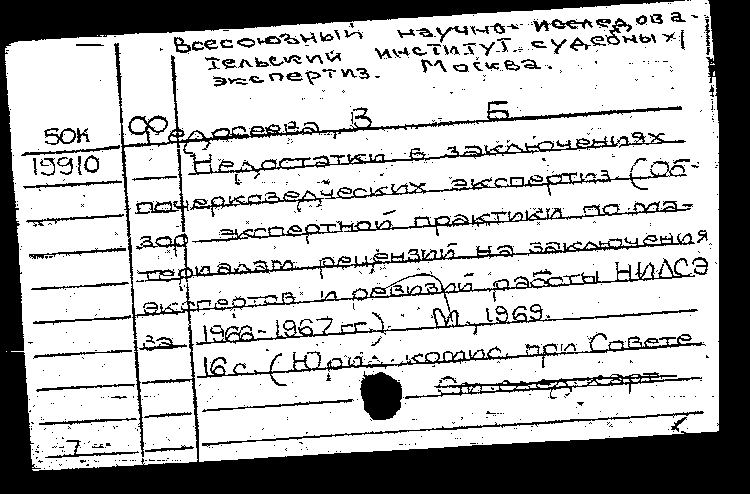 Всесоюзный научно-исследова-
тельский институт судебных
экспертиз. Москва.
50К Федосеева, В Б
19910 Недостатки в заключениях
почерковедческих экспертиз (Об-
зор экспертной практики по ма-
териалам рецензий на заключения
экспертов и ревизий работы НИЛСЭ
за 1966-1967 гг.). М., 1969.
16 с. (Юрид. комис. при Совете
См. след. карт.
7